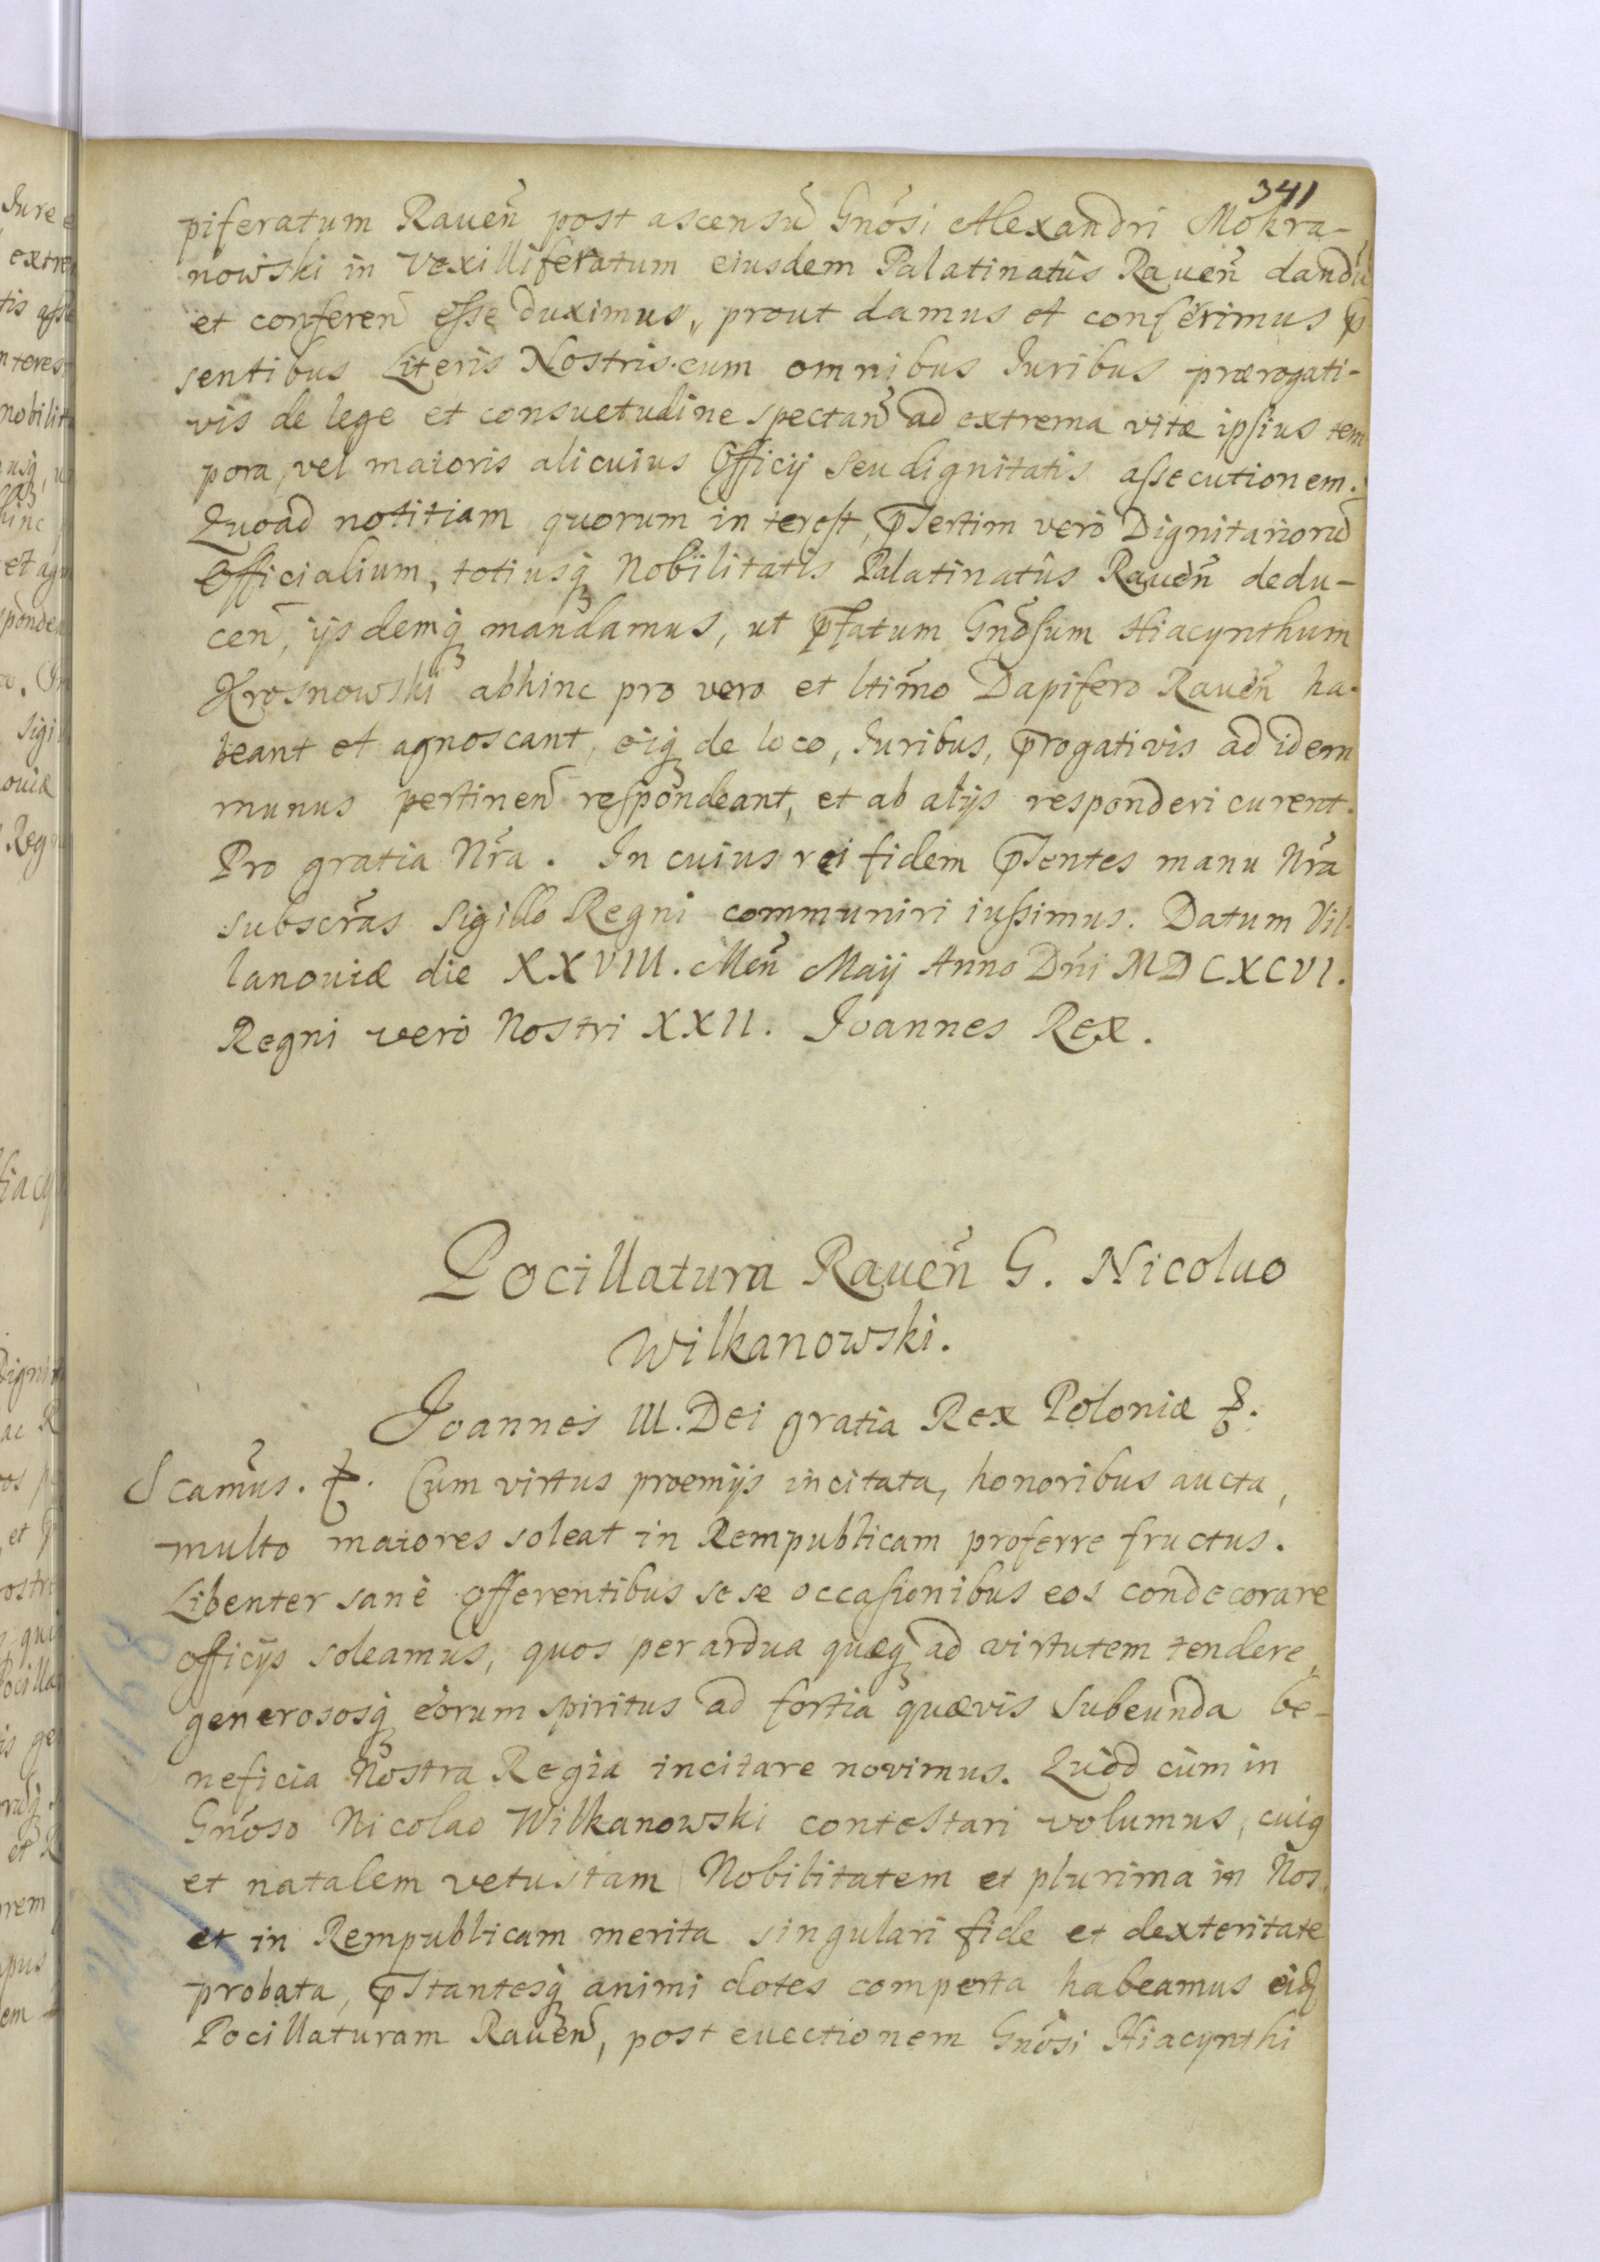 341
piferatum Raueñ post ascensũ Gnõsi Alexandri Mokra-
nowski in Vexilliferatum eiusdem Palatinatûs Raueñ dandũ
et conferen̄ esse duximus, prout damus et conferimus p̄-
sentibus Literis Nostris cum omnibus Iuribus prærogati-
vis de lege et consuetudine spectan̄ ad extrema vitæ ipsius tem
pora, vel maioris alicuius Officij seu dignitatis assecutionem.
Quoad notitiam quorum interest, p̄sertim verò Dignitariorũ
Officialium, totiusq̨ Nobilitatis Palatinatûs Raueñ dedu-
cen̄, ijsdemq̨ mandamus, ut p̄fatum Gnõsum Hiacynthum
Krosnowski abhinc pro vero et ltim̃o Dapifero Raueñ ha-
beant et agnoscant, eiq̨ de loco, Iuribus, p̄rogativis ad idem
munus pertinen̄ respondeant, et ab alijs responderi curent.
Pro gratia Nr̃a. In cuius rei fidem p̄sentes manu Nr̃a
subscr̃as Sigillo Regni communiri iussimus. Datum Vil-
lanoviæ die XXVIII. Meñ Maij Anno Dñi MDCXCVI.
Regni verò Nostri XXII. Joannes Rex.
Pocillatura Raueñ G. Nicolao
Wilkanowski.
Joannes III. Dei gratia Rex Poloniæ &.
Scam̃us. &. Cum virtus præmijs incitata, honoribus aucta,
multo maiores soleat in Rempublicam proferre fructus.
Libenter sanè offerentibus se se occasionibus eos condecorare
officijs soleamus, quos per ardua quæq̨ ad virtutem tendere,
generososq̨ eorum spiritus ad fortia quævis subeunda be-
neficia Nostra Regia incitare novimus. Quòd cùm in
Gnõso Nicolao Wilkanowski contestari volumus, cuiq̨
et natalem vetustam Nobilitatem et plurima in Nos,
et in Rempublicam merita singulari fide et dexteritate
probata, p̄stantesq̨ animi dotes comperta habeamus eiq̨
Pocillaturam Raueñ, post euectionem Gnõsi Hiacynthi